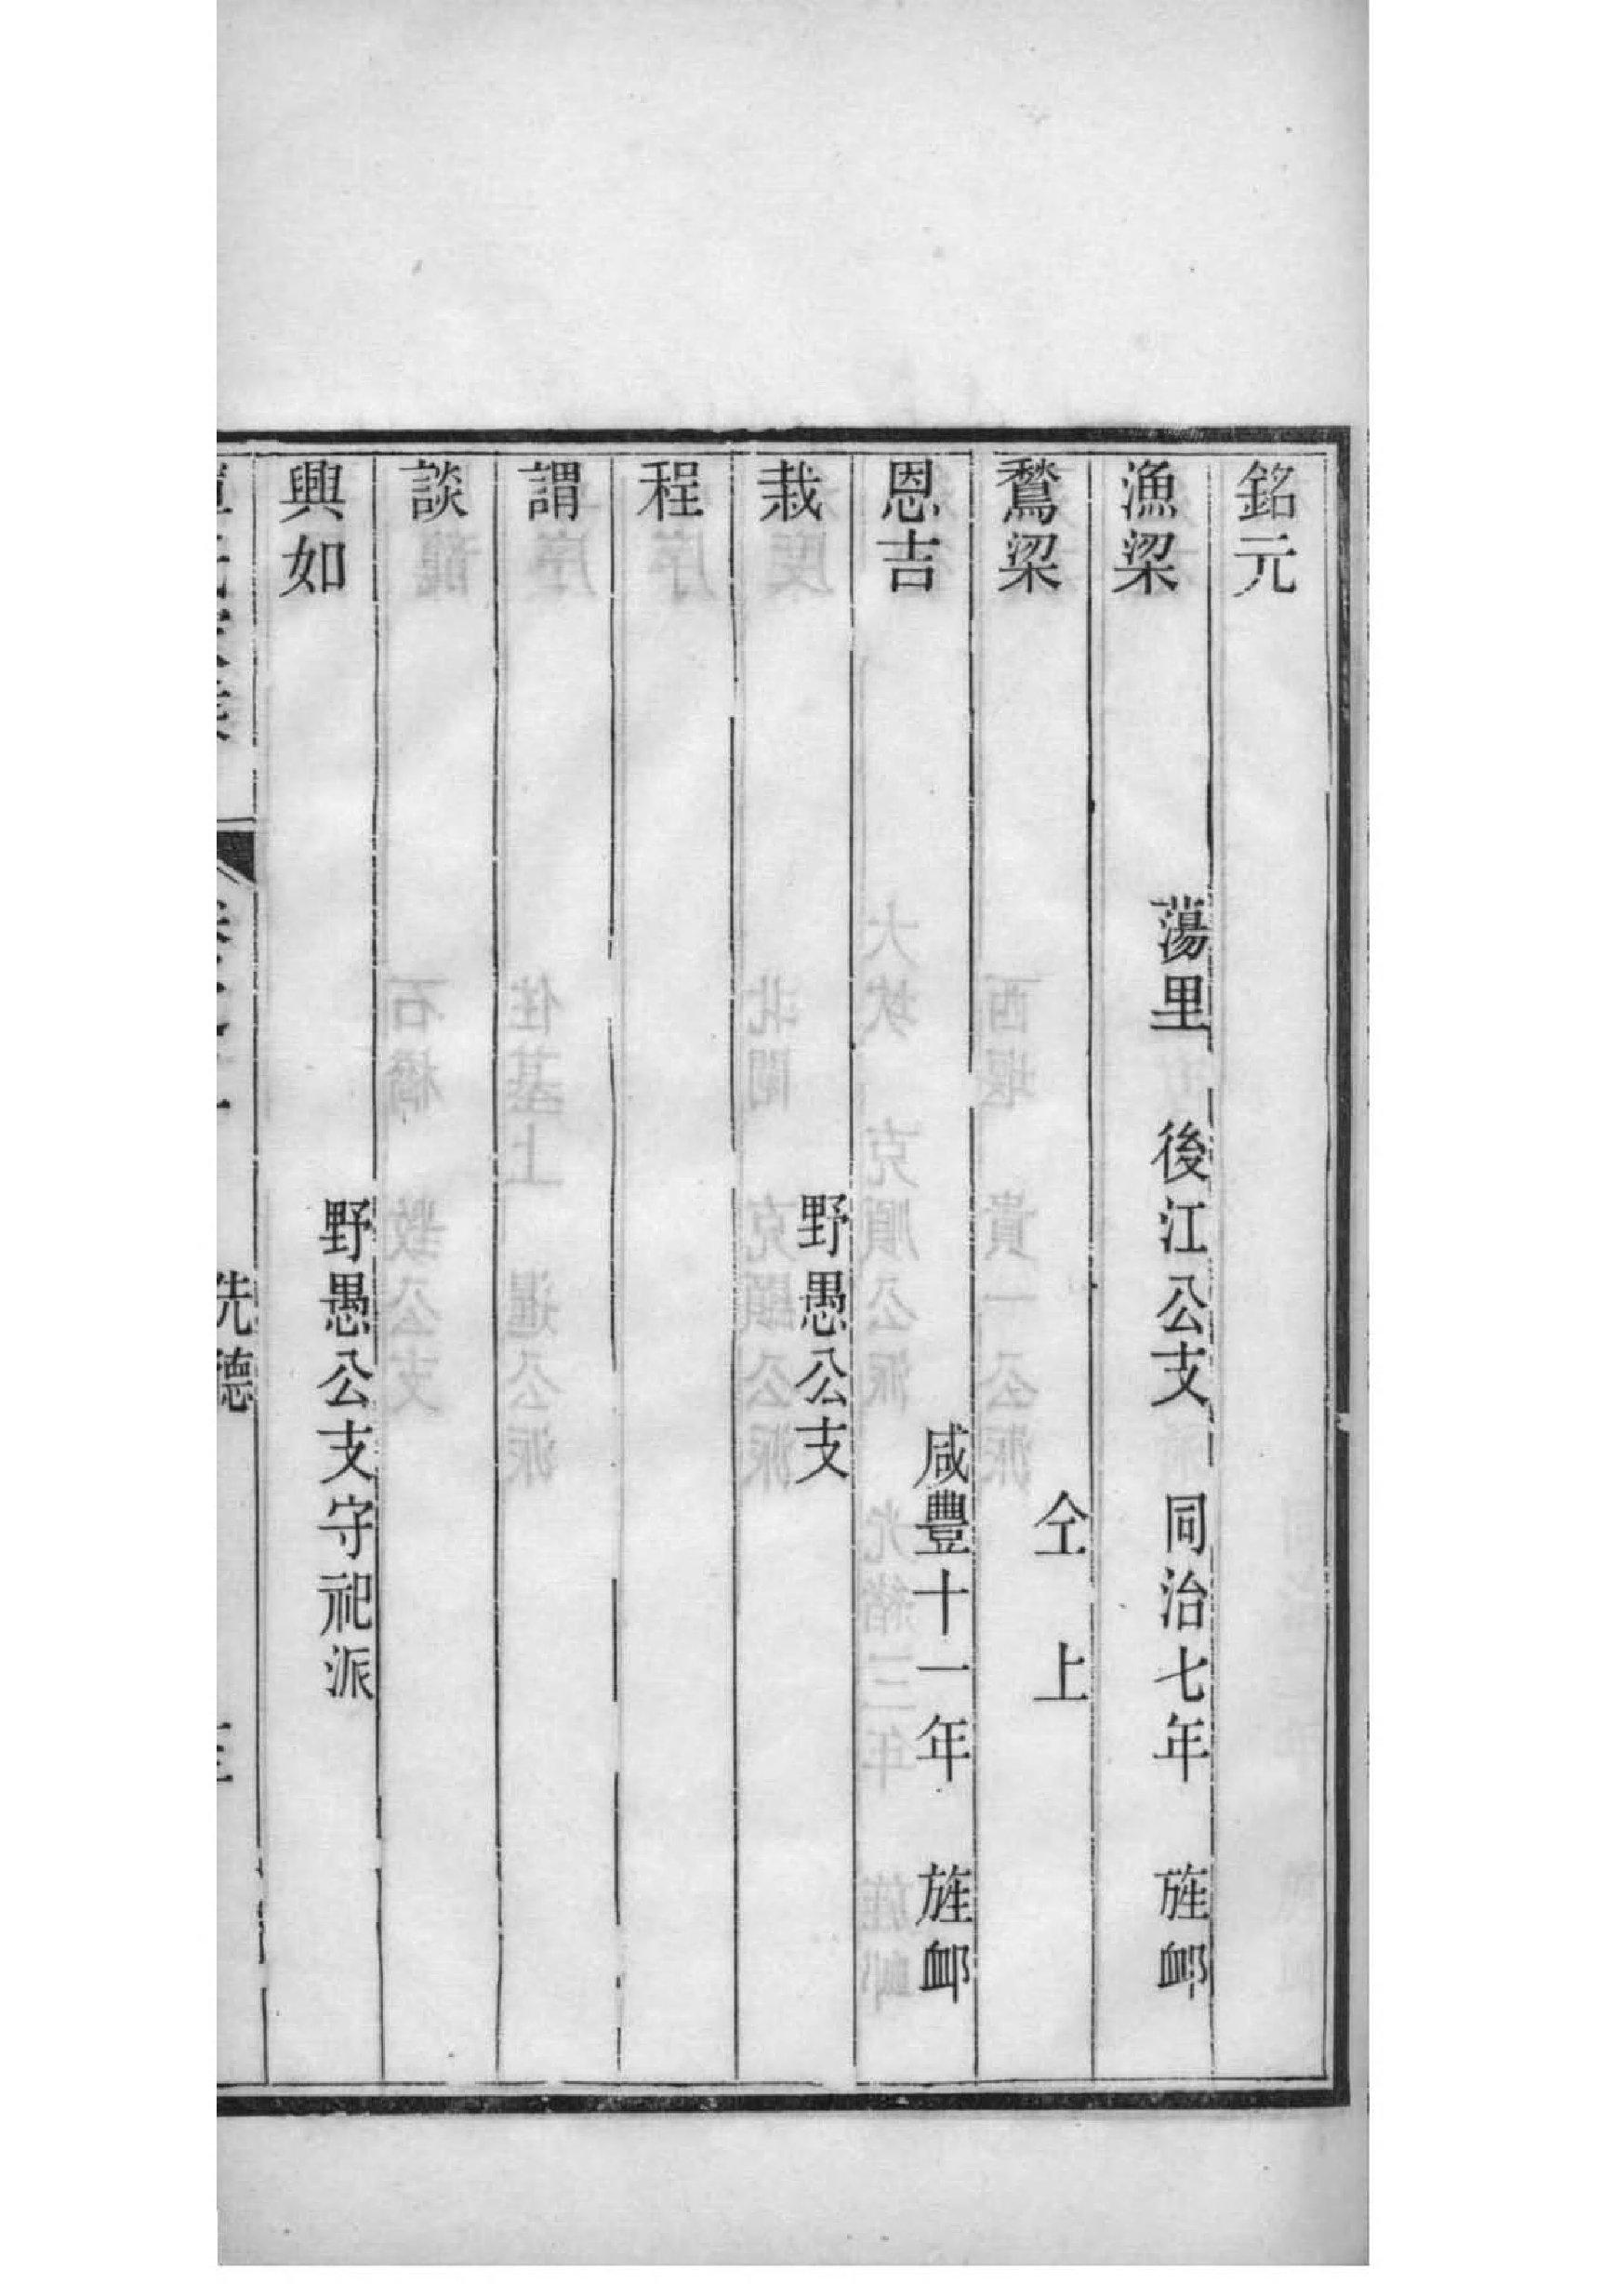 銘元
漁梁 蕩里 後江公支 同治七年 旌卹
鶩梁 仝上
恩吉 咸豐十一年 旌卹
栽 野愚公支
程
謂
談
興如 野愚公支守祀派
先德